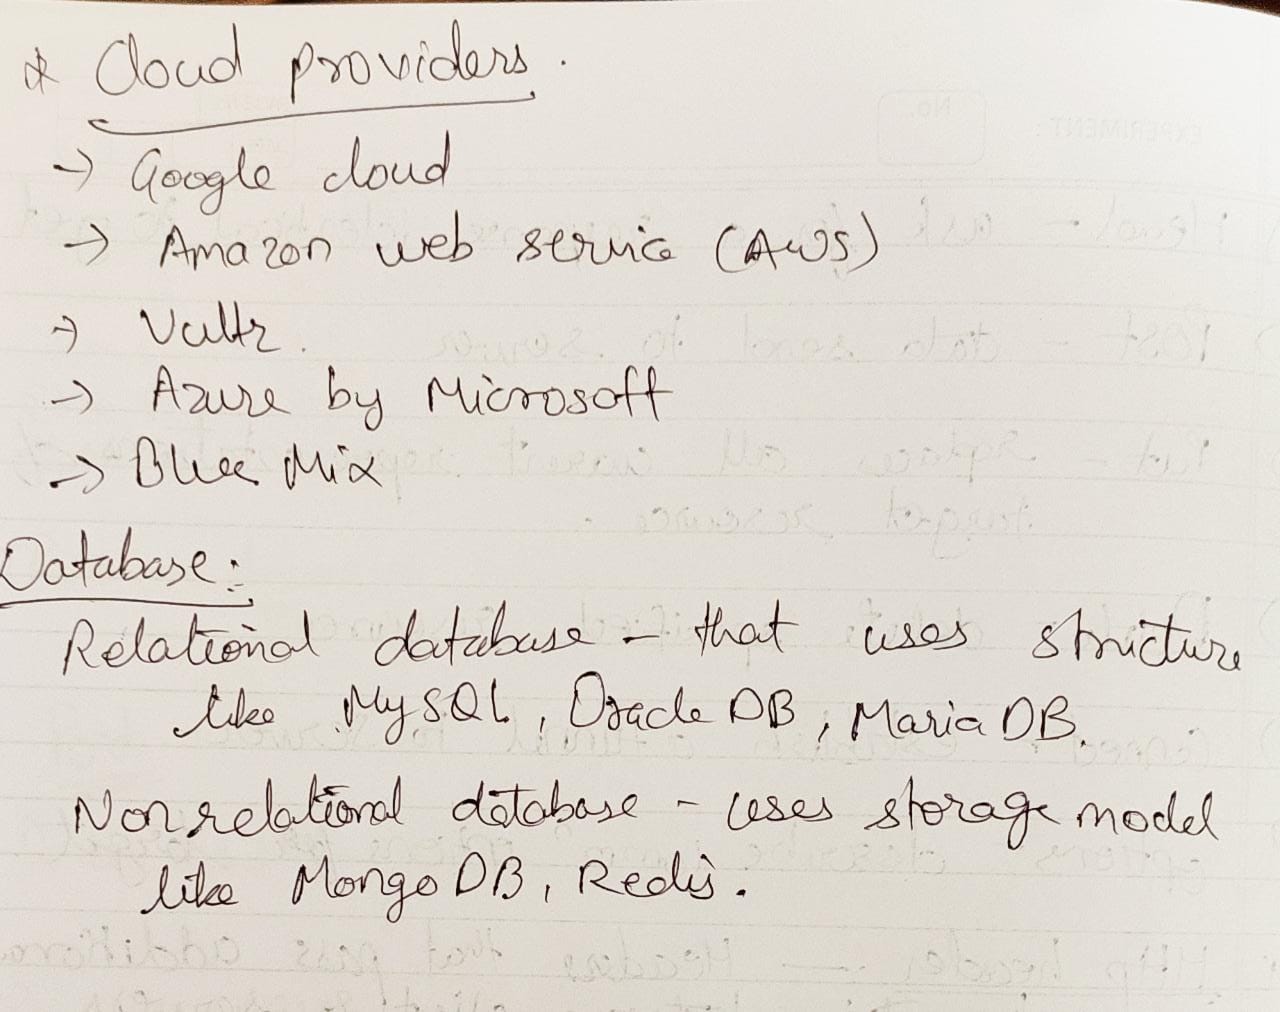 * Cloud providers.
→ Google cloud
→ Amazon web service (AWS)
→ Vultr.
→ Azure by Microsoft
→ Blue Mix
Database:
Relational database - that uses structure
like MySQL, Oracle DB, Maria DB.
Non relational database - uses storage model
like Mongo DB, Redis.